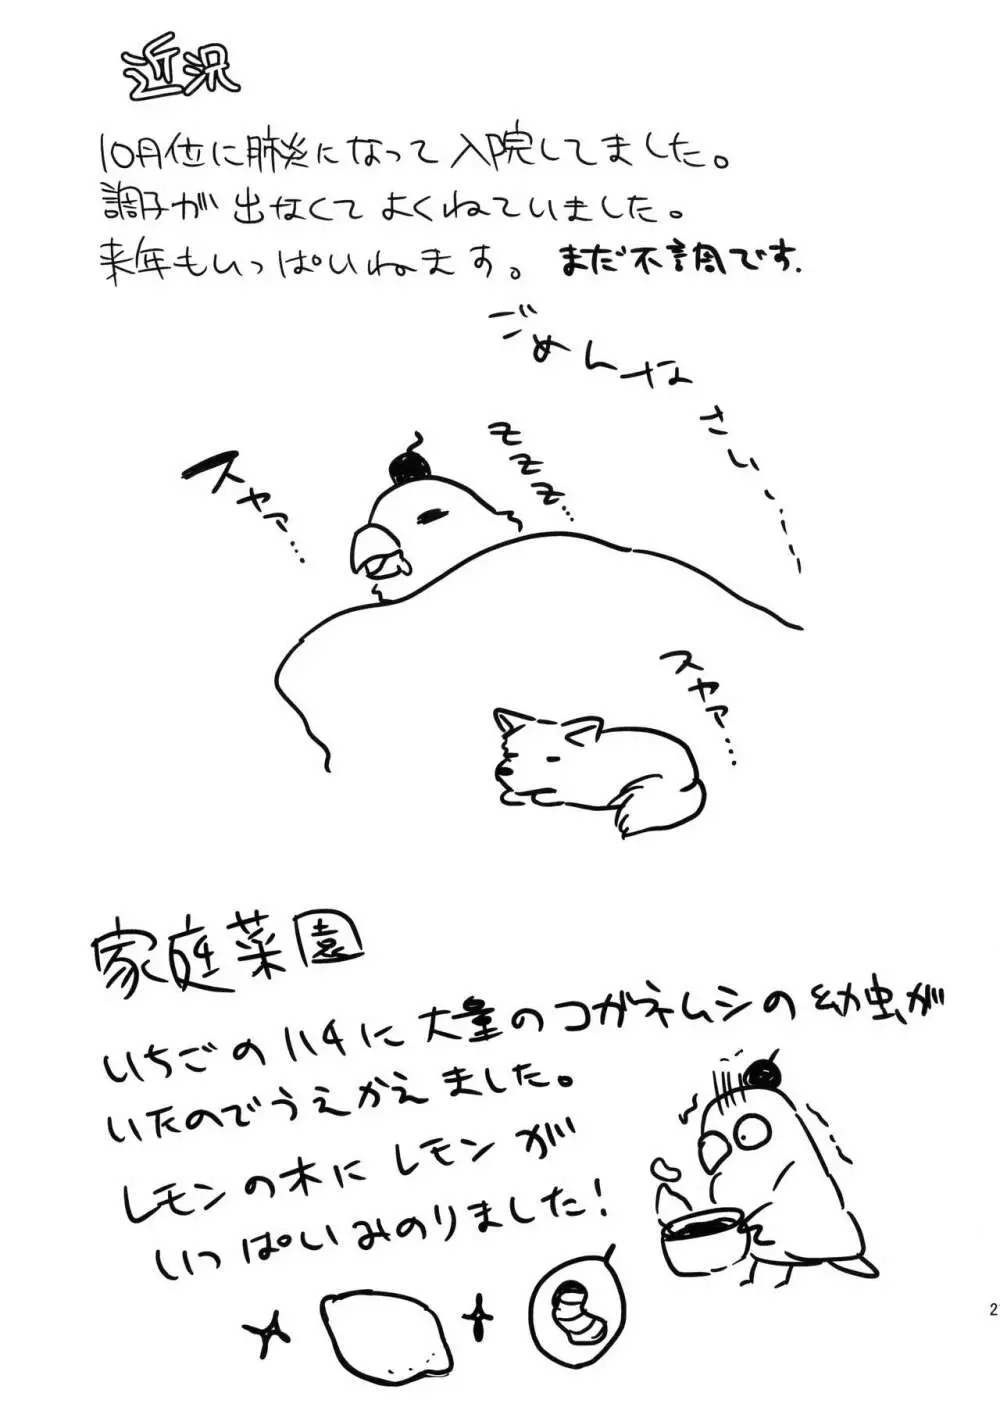 近況
10月位に肺炎になって入院してました。
調子が出なくてよくねていました。
来年もいっぱいねます。まだ不調です.
ごめんなさい……
ススヤァ…
zzz…
スヤァ…
家庭菜園
いちごのハチに大量のコガネムシの幼虫が
いたのでうえかえました。
レモンの木にレモンが
いっぱいみのりました!
2